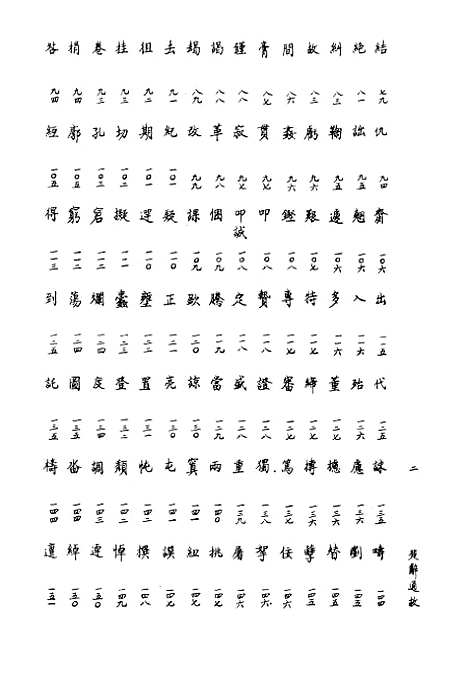 結 絕 糾 故 間 膏 謹 謁 竭 去 徂 挂 卷 捐 咎
七九 八一 八一 八三 八六 八七 八八 八九 八九 九一 九二 九三 九三 九四 九四
仇 詘 鞠 虧 姦 貫 寂 革 改 紀 期 切 孔 廓 短
九四 九五 九五 九六 九六 九七 九八 九八 九九 一〇一 一〇一 一〇二 一〇三 一〇五 一〇五
齋 翹 遽 艱 鏗 叩 叩誠 悃 謀 疑 擬 宕 窮 得
一〇六 一〇六 一〇六 一〇七 一〇八 一〇八 一〇八 一〇九 一〇九 一一〇 一一〇 一一一 一一二 一一二 一一三
出 入 多 特 專 贄 定 騰 歐 正 壅 蠹 爛 蕩 到
一一五 一一六 一一六 一一七 一一七 一一八 一一八 一一九 一二〇 一二一 一二二 一二三 一二四 一二四 一二五
代 殆 董 締 審 證 盛 當 諒 亮 置 登 度 圖 託
一二五 一二六 一二六 一二六 一二七 一二八 一二八 一二九 一三〇 一三〇 一三一 一三二 一三三 一三四 一三五
諑 慮 摶 篤 獨 重 兩 屯 忳 頹 調 沓 檮
一三五 一三六 一三六 一三六 一三八 一三八 一三九 一四〇 一四一 一四一 一四二 一四三 一四四 一四四 一四四
疇 劉 替 孽 侘 挐 屠 挑 紐 謨 撰 悼 運 綽 邅
一四四 一四五 一四五 一四六 一四六 一四六 一四七 一四七 一四七 一四七 一四八 一四九 一五〇 一五〇 一五一
二
楚辭通故